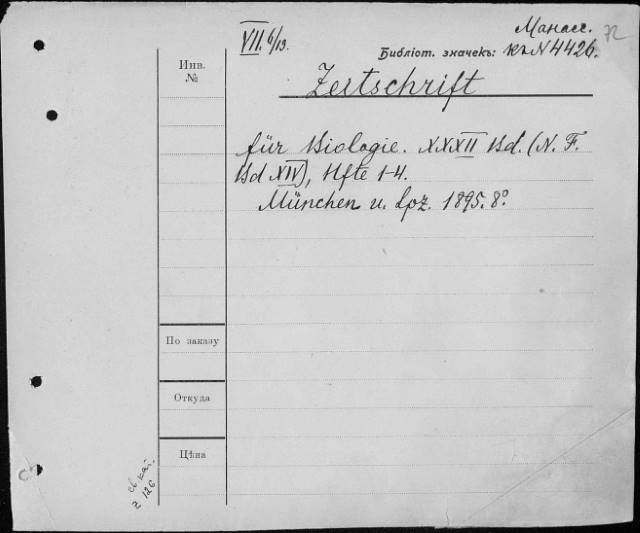 VII. 6/19.
Манасс. 72
Библіот. значекъ: къ N 4426.
Инв.
№
Zeitschrift
für Biologie. XXXII Bd. (N. F.
Bd XIV), Hfte 1-4.
München u. Lpz. 1895. 8°
По заказу
Откуда
Цѣна